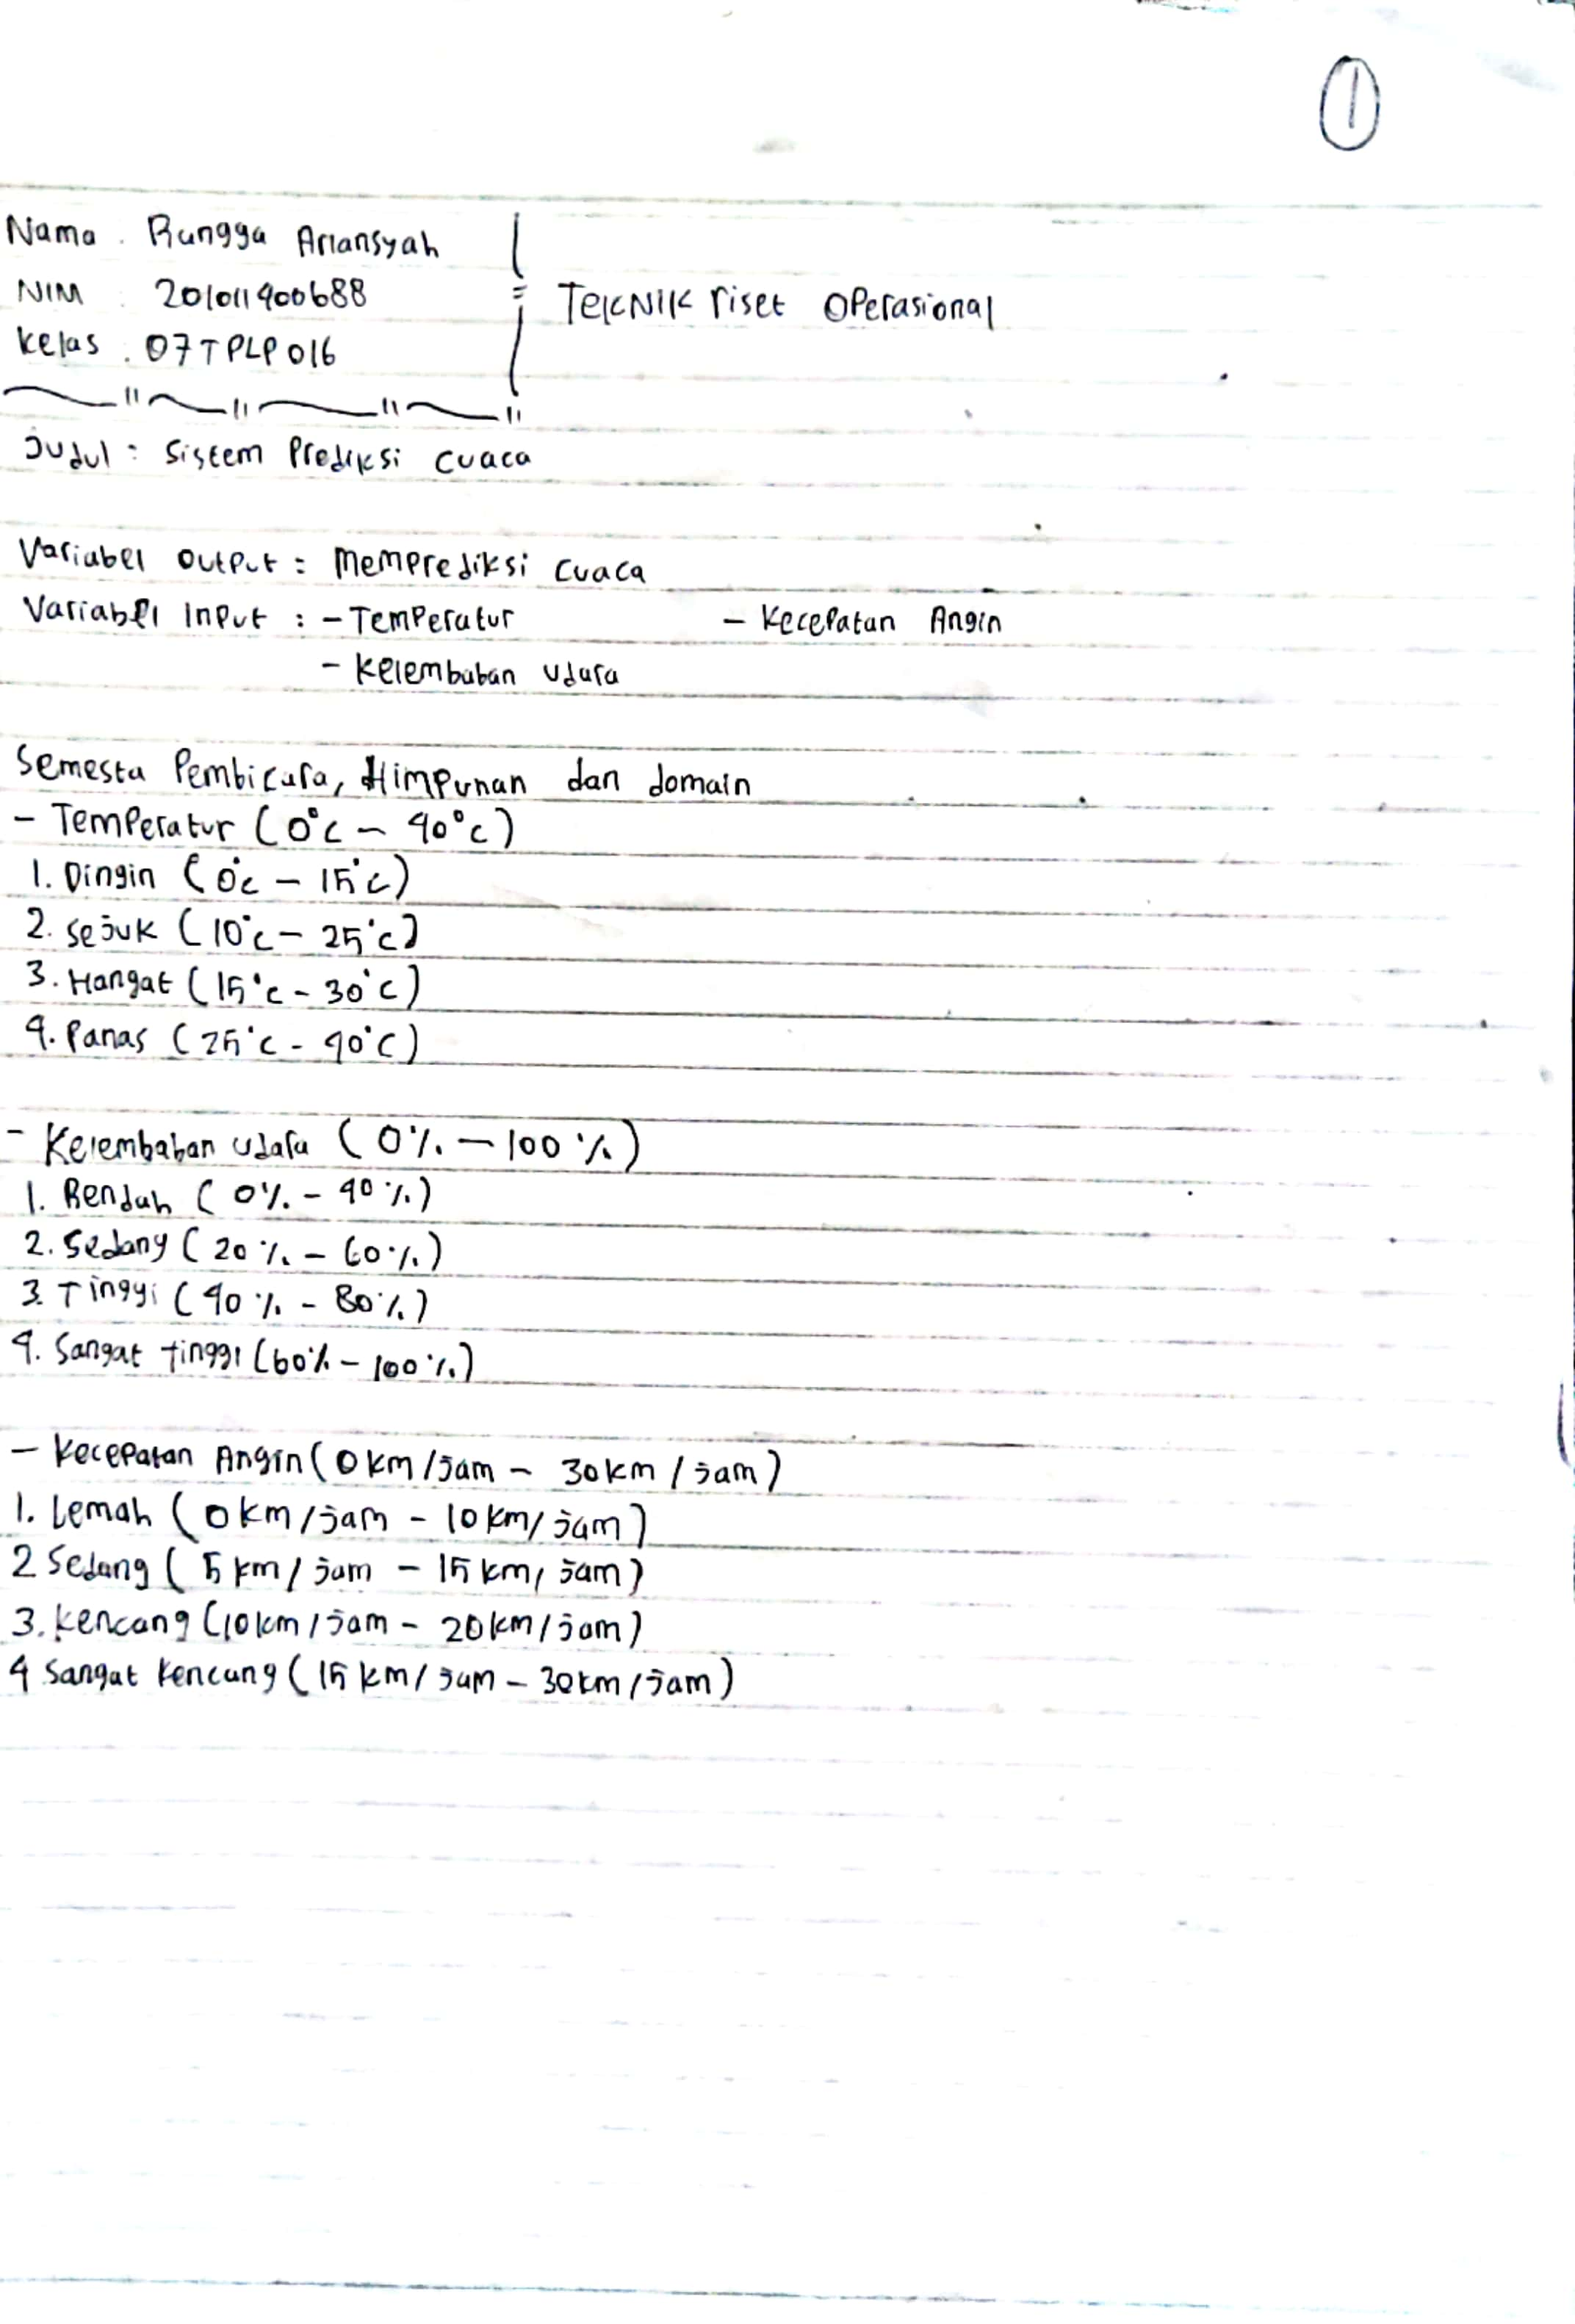 1
Nama : Rangga Ariansyah
NIM : 201011400688
Kelas : 07TPLP016
Teknik riset Operasional
Judul : Sistem Prediksi Cuaca
Variabel Output : Memprediksi Cuaca
Variabel Input : - Temperatur - Kecepatan Angin
- Kelembaban Udara
Semesta Pembicara, Himpunan dan domain
- Temperatur (0°C - 40°C)
1. Dingin (0°C - 15°C)
2. Sejuk (10°C - 25°C)
3. Hangat (15°C - 30°C)
4. Panas (25°C - 40°C)
- Kelembaban Udara (0% - 100%)
1. Rendah (0% - 40%)
2. Sedang (20% - 60%)
3. Tinggi (40% - 80%)
4. Sangat tinggi (60% - 100%)
- Kecepatan Angin (0 km/jam - 30 km/jam)
1. Lemah (0 km/jam - 10 km/jam)
2 Sedang (5 km/jam - 15 km/jam)
3. Kencang (10 km/jam - 20 km/jam)
4 Sangat kencang (15 km/jam - 30 km/jam)